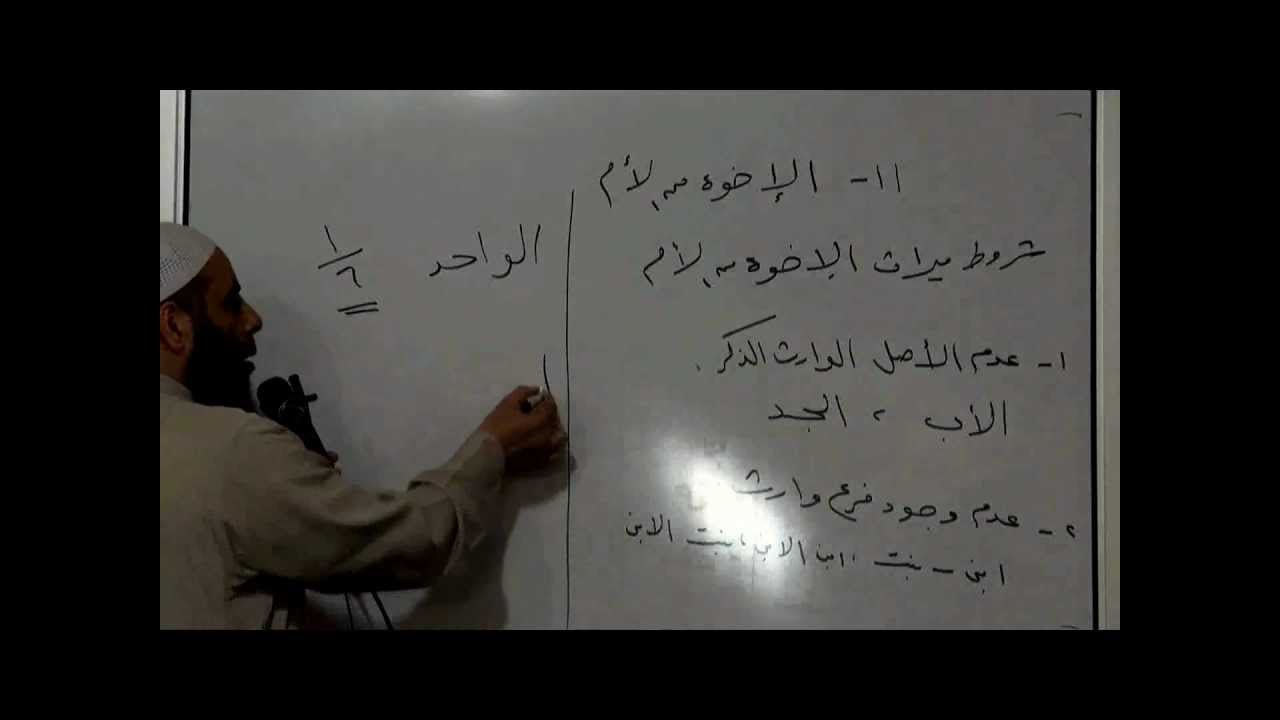 ١١- الإخوة من الأم
شروط ميراث الإخوة من الأم
١- عدم الأصل الوارث الذكر.
الأب ، الجد
٢- عدم وجود فرع وارث
ابن - بنت ، ابن الابن ، بنت الابن
الواحد ١/٦